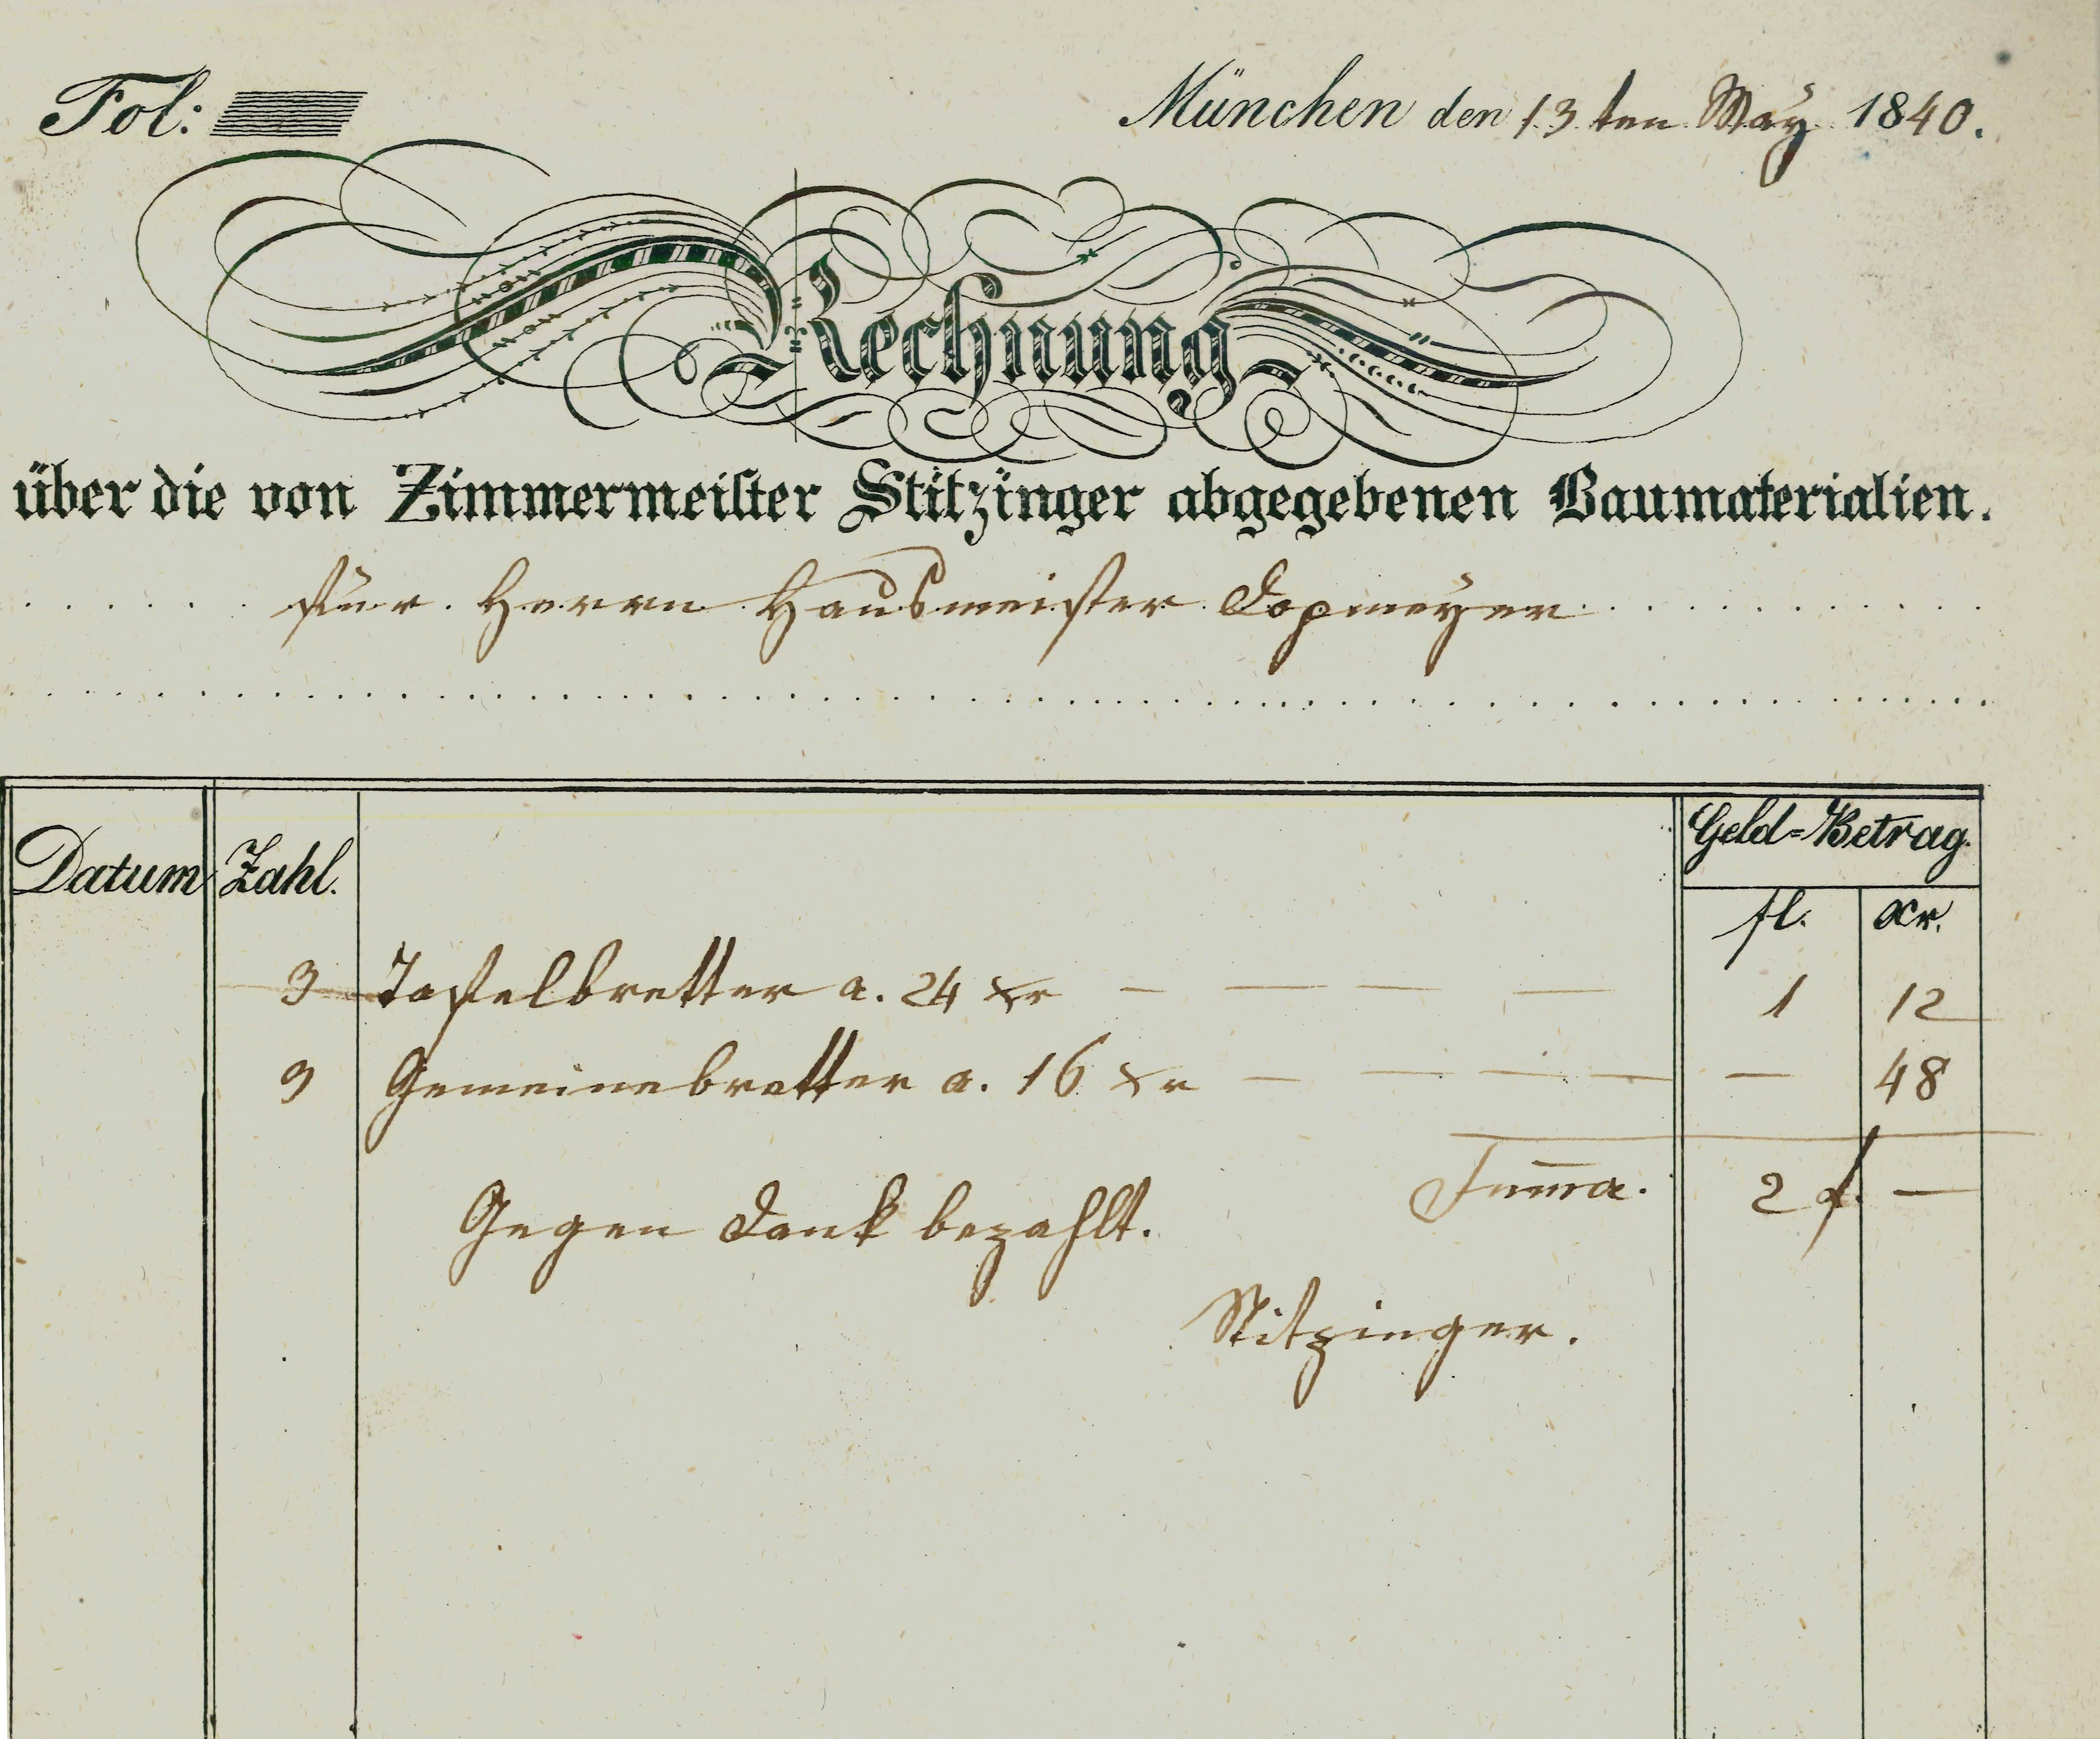 Fol:
München den 13ten Maÿ 1840.
Rechnung
über die von Zimmermeister Stitzinger abgegebenen Baumaterialien.
für Herrn Hausmeister Dopmeÿer
Datum Zahl. Geld=Betrag.
fl. xr.
3 Tafelbretter a. 24 xr — — — — 1 12
3 Gemeinebretter a. 16 xr — — — — — 48
Sum̅a. 2 f. —
Gegen Dank bezahlt.
Stitzinger.